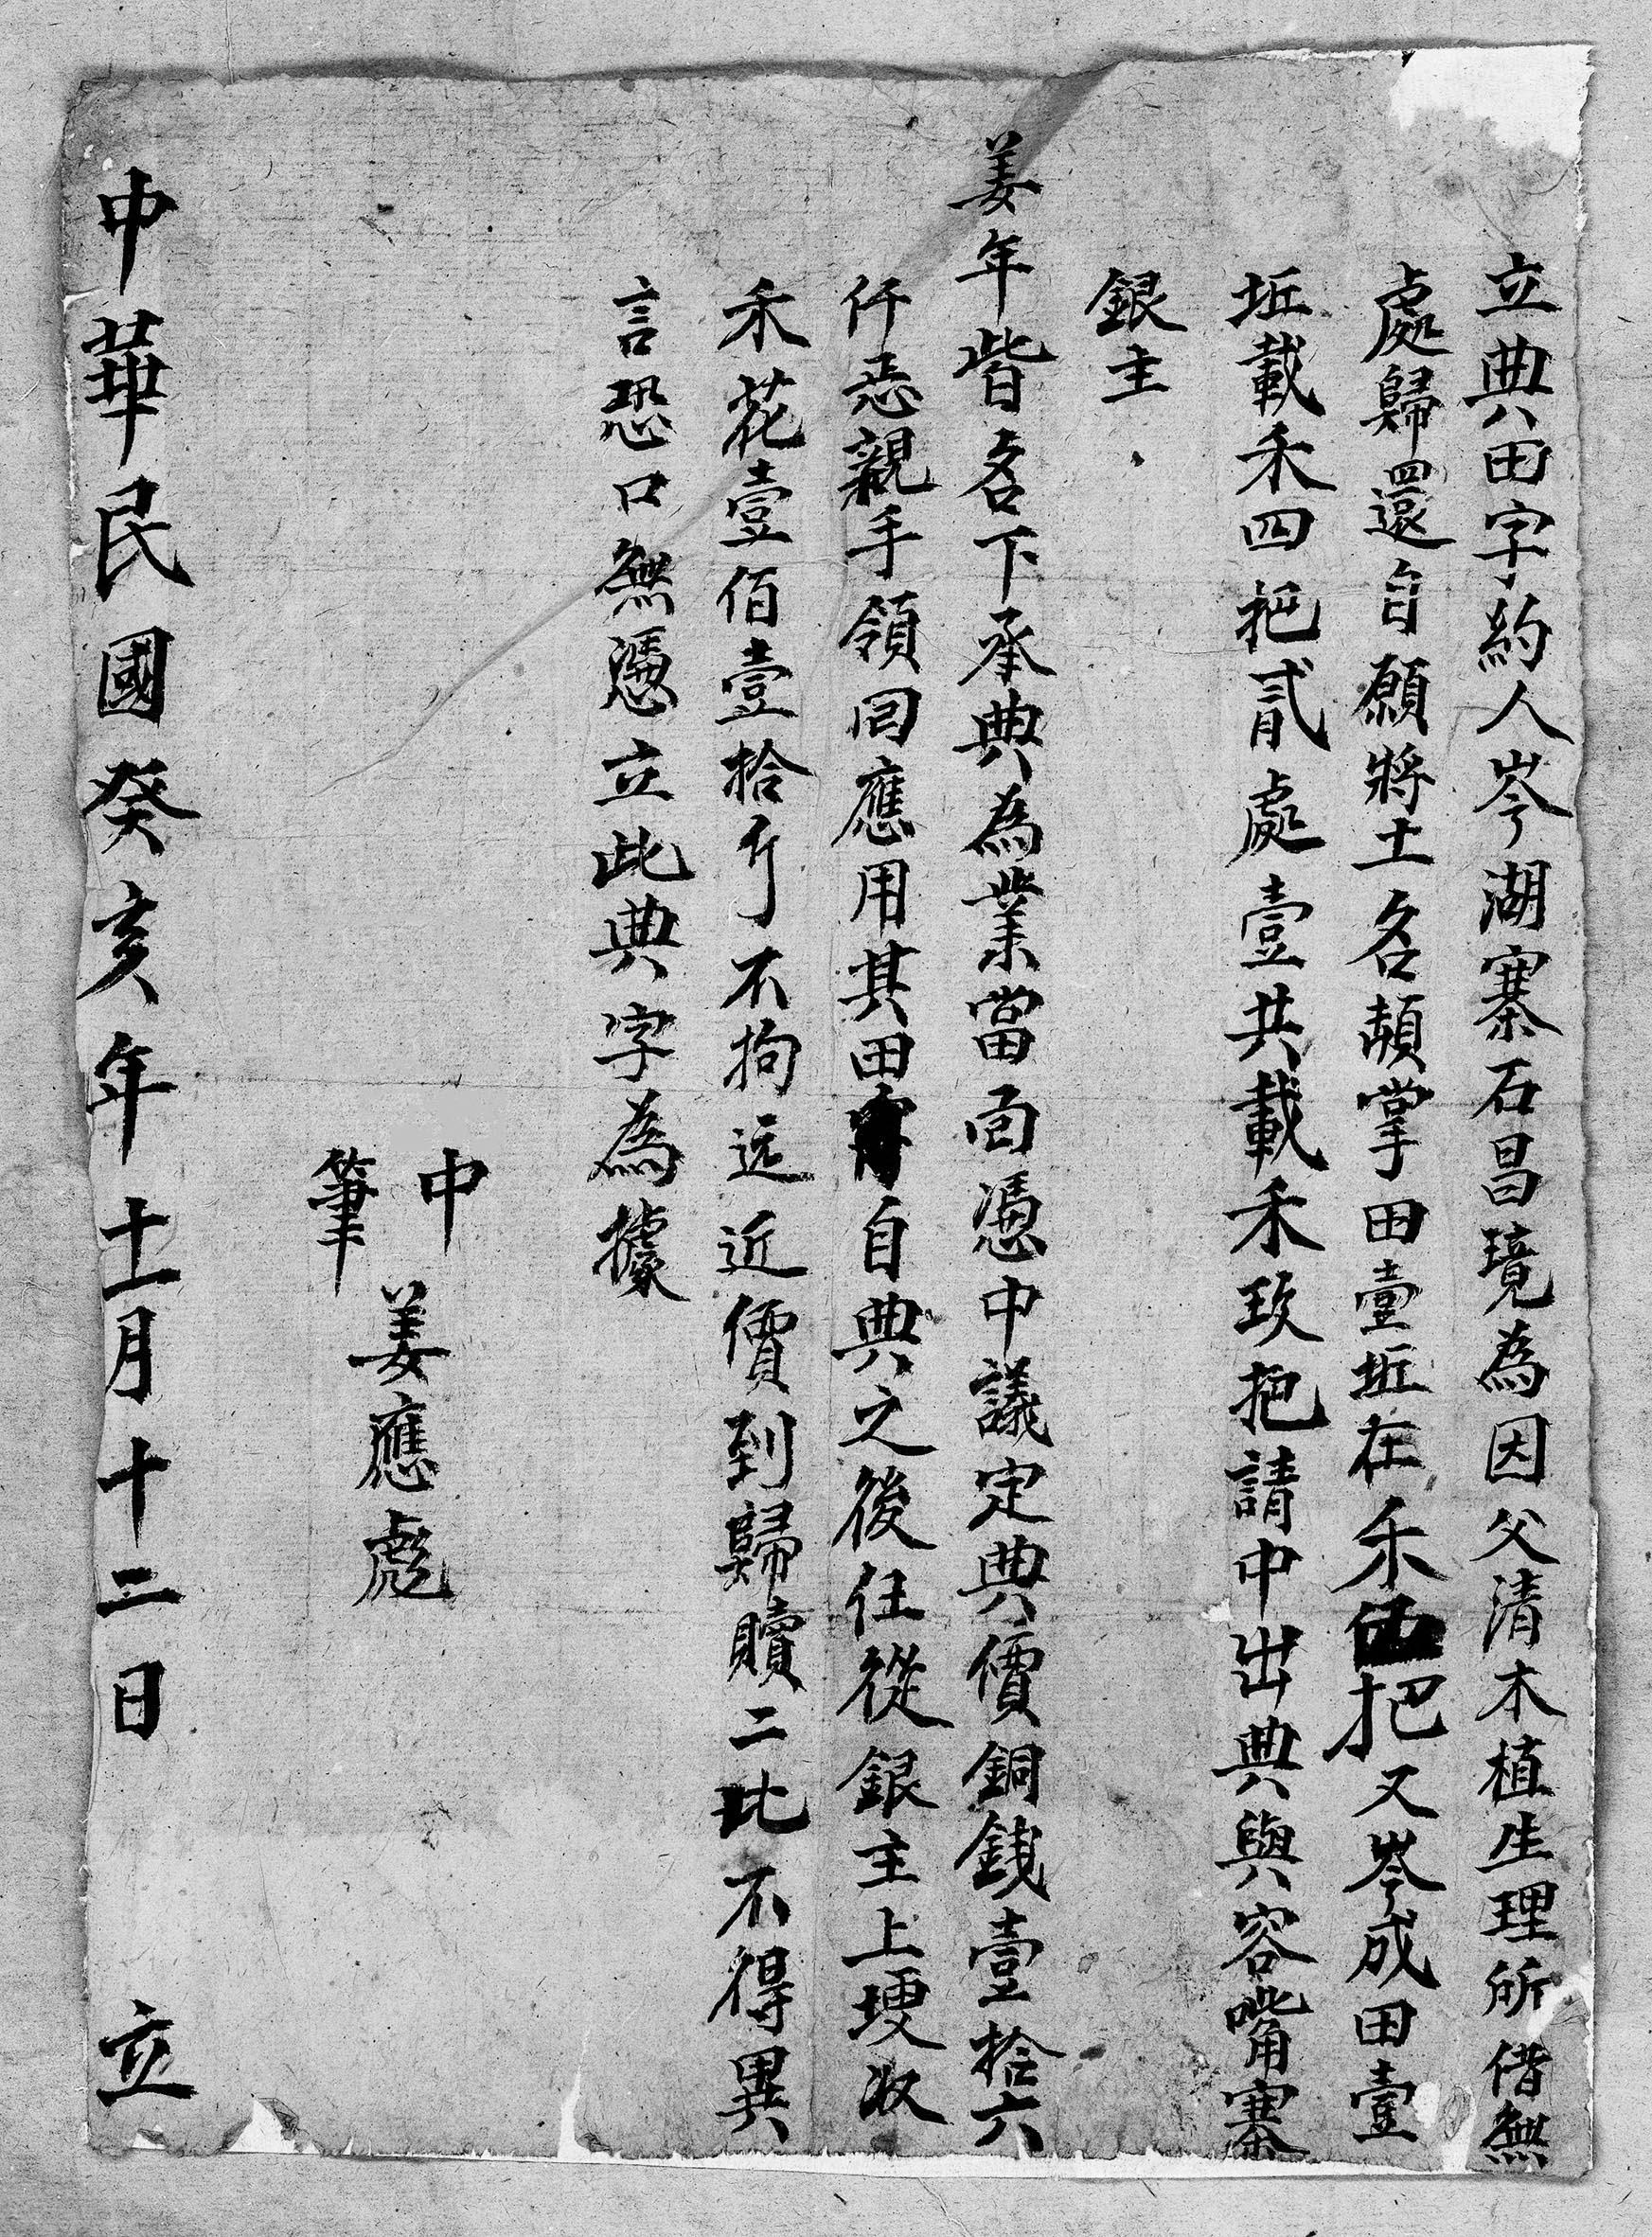 立典田字約人岑湖寨石昌璄為因父清本植生理所借無
處歸還自願將土名頼掌田壹坵在禾伍把又岑成田壹
坵載禾四把貳處壹共載禾玖把請中出典與容嘴寨
銀主
姜年皆名下承典為業當面憑中議定典價銅錢壹拾六
仟㤅親手領回應用其田自典之後任從銀主上埂收
禾花壹佰壹拾斤不拘远近價到歸贖二比不得異
言恐口無憑立此典字為據
中
筆
姜應彪
中華民國癸亥年十一月十二日 立